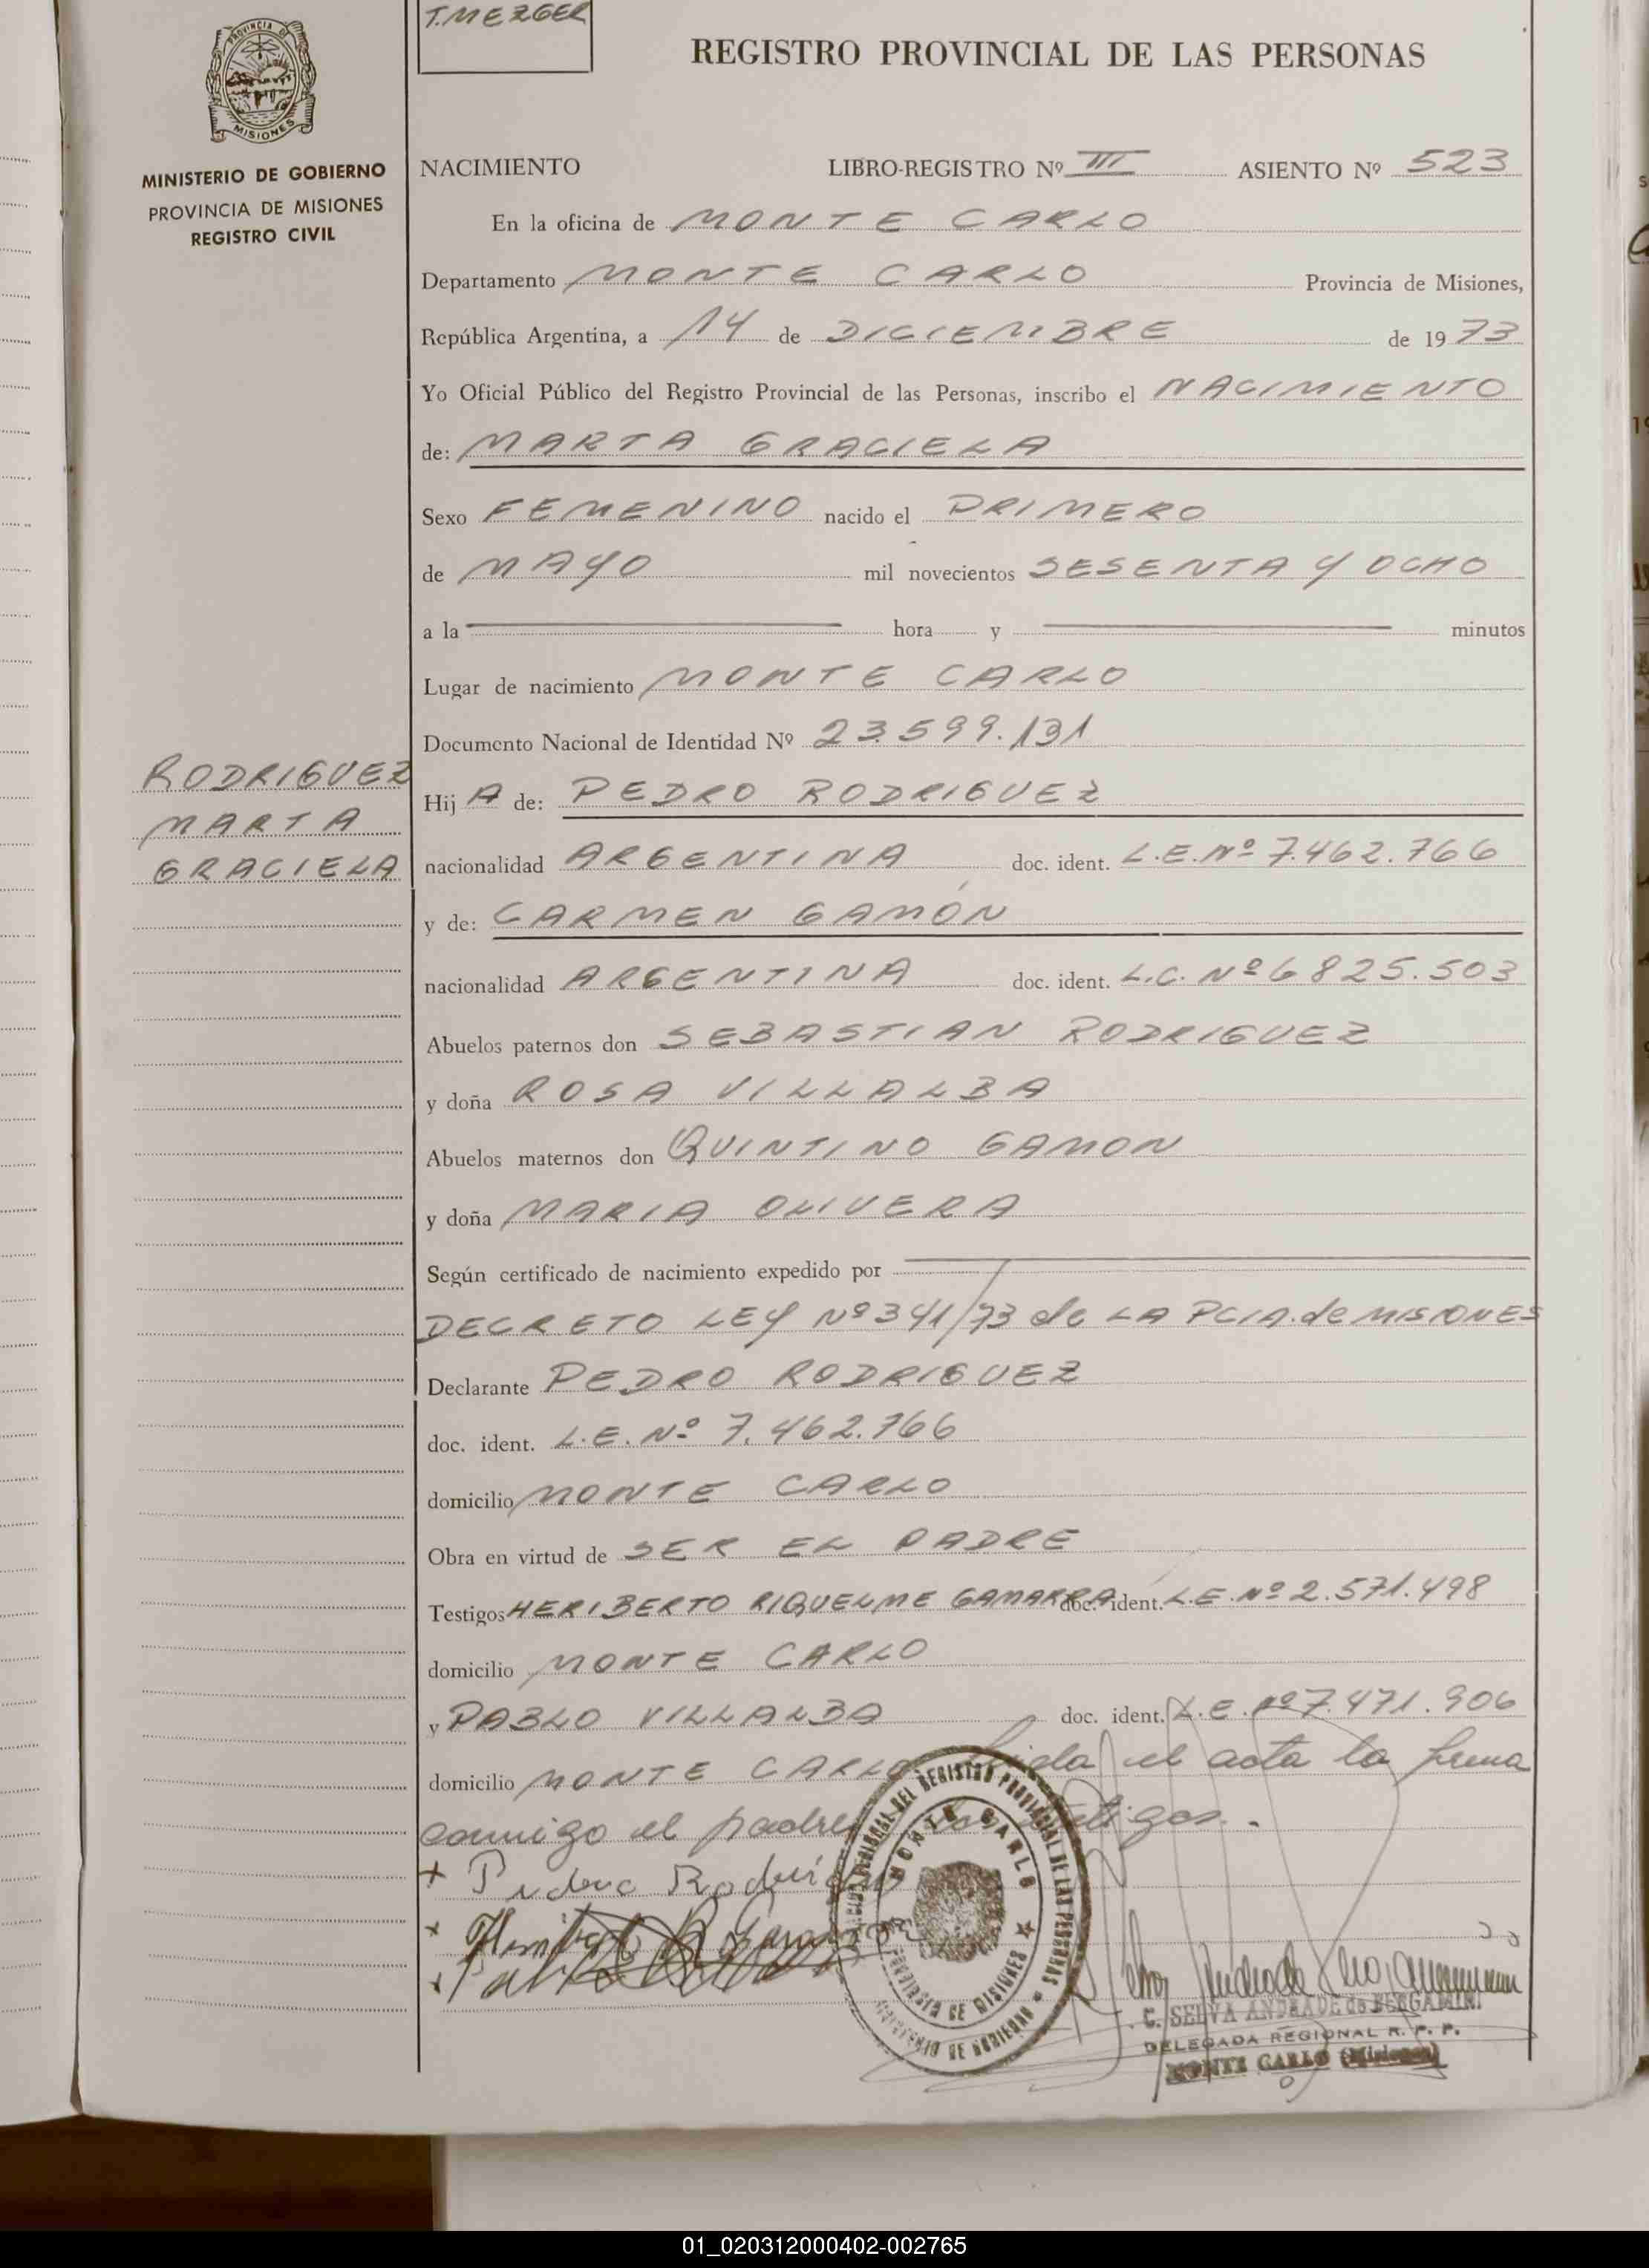 T. MEZGER
REGISTRO PROVINCIAL DE LAS PERSONAS
PROVINCIA DE
MISIONES
MINISTERIO DE GOBIERNO
PROVINCIA DE MISIONES
REGISTRO CIVIL
NACIMIENTO LIBRO-REGISTRO Nº III ASIENTO Nº 523
En la oficina de MONTE CARLO
Departamento MONTE CARLO Provincia de Misiones,
República Argentina, a 14 de DICIEMBRE de 1973
Yo Oficial Público del Registro Provincial de las Personas, inscribo el NACIMIENTO
de: MARTA GRACIELA
Sexo FEMENINO nacido el PRIMERO
de MAYO mil novecientos SESENTA Y OCHO
a la hora y minutos
Lugar de nacimiento MONTE CARLO
Documento Nacional de Identidad Nº 23.599.131
RODRIGUEZ
MARTA
GRACIELA
Hij A de: PEDRO RODRIGUEZ
nacionalidad ARGENTINA doc. ident. L.E. Nº 7.462.766
y de: CARMEN GAMÓN
nacionalidad ARGENTINA doc. ident. L.C. Nº 6825.503
Abuelos paternos don SEBASTIAN RODRIGUEZ
y doña ROSA VILLALBA
Abuelos maternos don QUINTINO GAMON
y doña MARIA OLIVERA
Según certificado de nacimiento expedido por
DECRETO LEY Nº 341/73 de LA PCIA. de MISIONES
Declarante PEDRO RODRIGUEZ
doc. ident. L.E. Nº 7.462.766
domicilio MONTE CARLO
Obra en virtud de SER EL PADRE
Testigos HERIBERTO RIQUELME GAMARRA doc. ident. L.E. Nº 2.571.498
domicilio MONTE CARLO
y PABLO VILLALBA doc. ident. L.E. Nº 7.471.906
domicilio MONTE CARLO Leida el acta la firma
conmigo el padre los testigos.
+ Pedro Rodrigue
REGIONAL DEL REGISTRO PROVINCIAL DE LAS PERSONAS
MONTE CARLO
PROVINCIA DE MISIONES
MINISTERIO DE GOBIERNO
C. SELVA ANDRADE de BERGAMINI
DELEGADA REGIONAL R. P. P.
MONTE CARLO (Misiones)
01_020312000402-002765